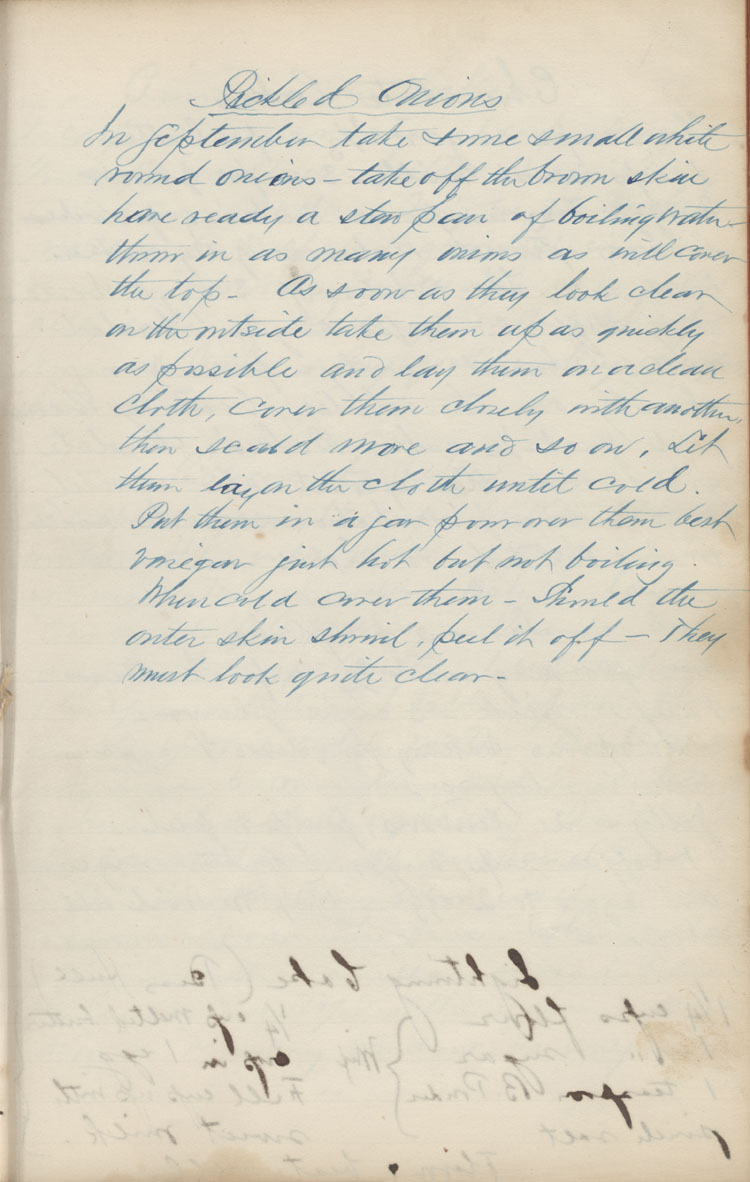 Pickled Onions
In September take some small white
round onions – take off the brown skin
have ready a stew pan of boiling water
throw in as many onions as will cover
the top – As soon as they look clear
on the outside take them up as quickly
as possible and lay them on a clean
cloth, cover them closely with another,
then scald more and so on. Let
them lay on the cloth until cold.
Put them in a jar pour over them best
vinegar just hot but not boiling.
When cold cover them – Should the
outer skin shrivel, peel it off – They
must look quite clear –
Lightning Cake
1¼ cups flour ¼ cup melted butter
1 " sugar 1 egg
1 teaspoon B Powder Fill cup with
pinch salt sweet milk.